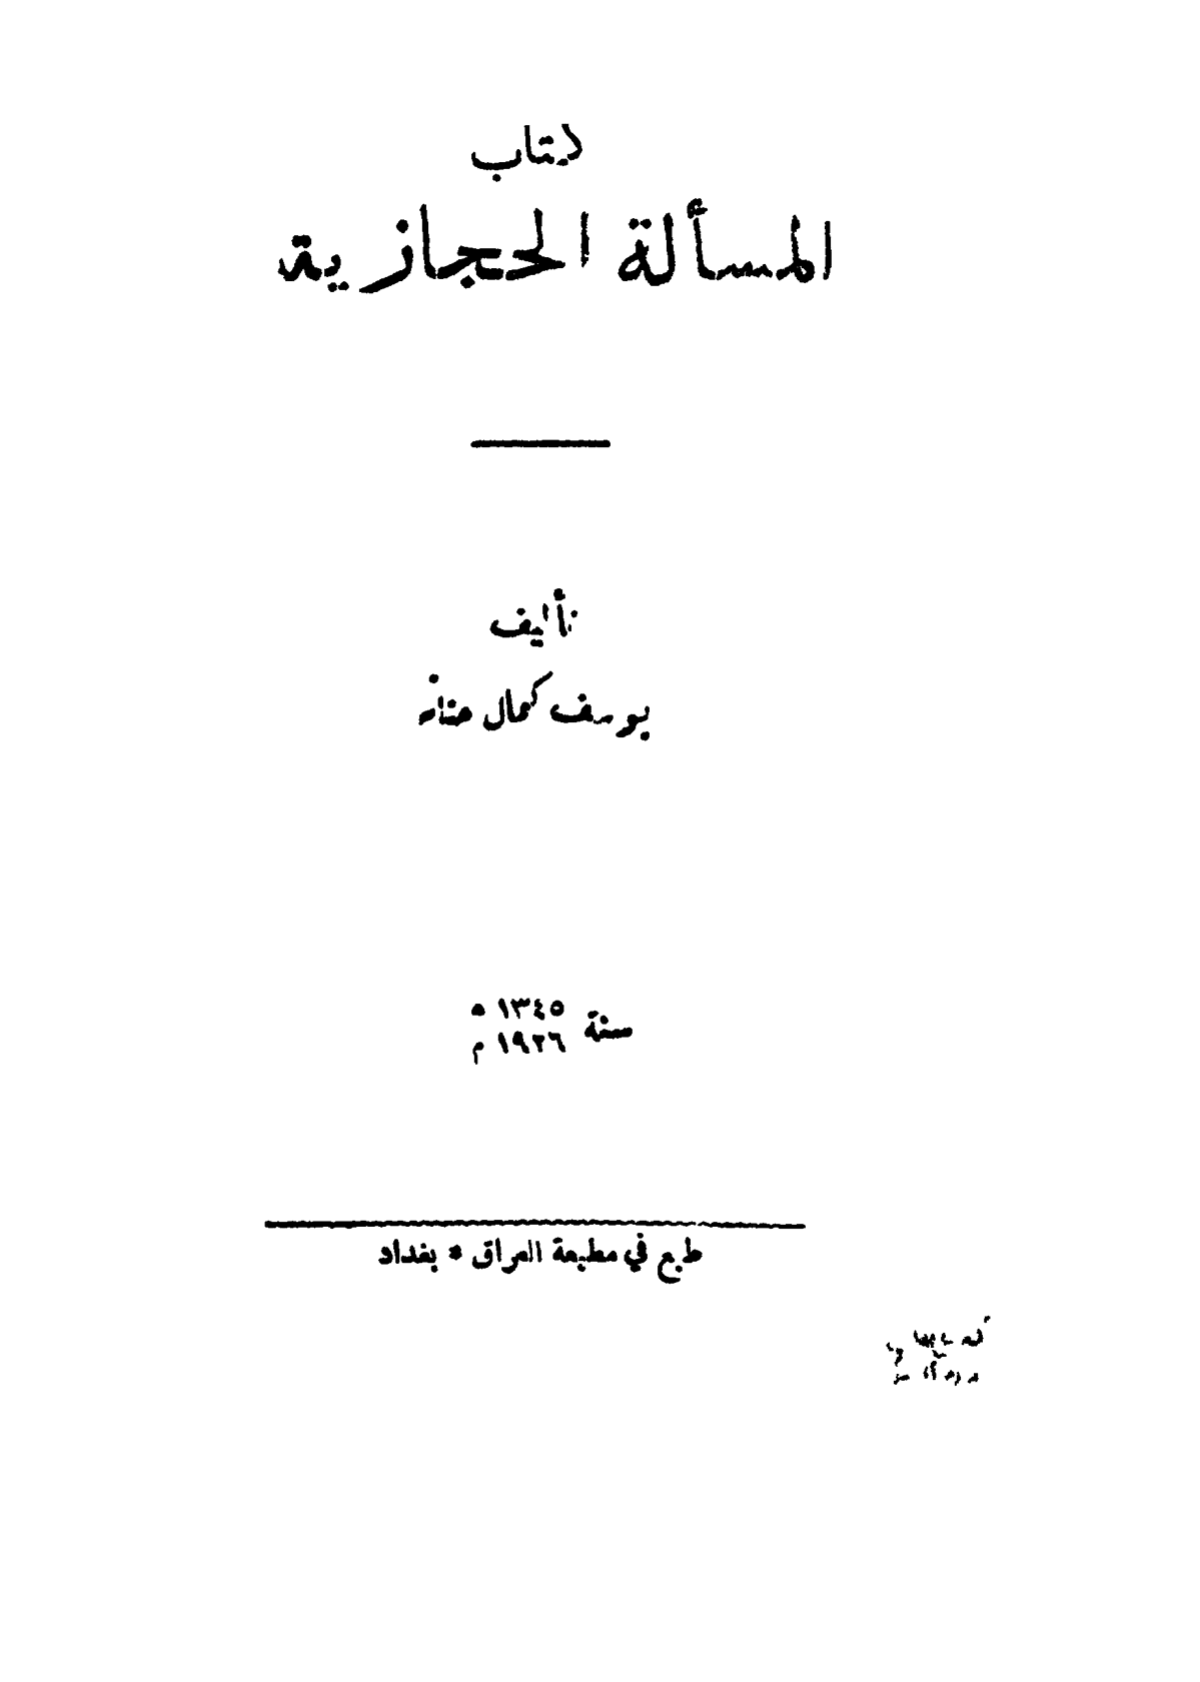 كتاب
المسألة الحجازية
تأليف
يوسف كمال حتاتة
سنة ١٣٤٥ ه
١٩٢٦ م
طبع في مطبعة العراق * بغداد